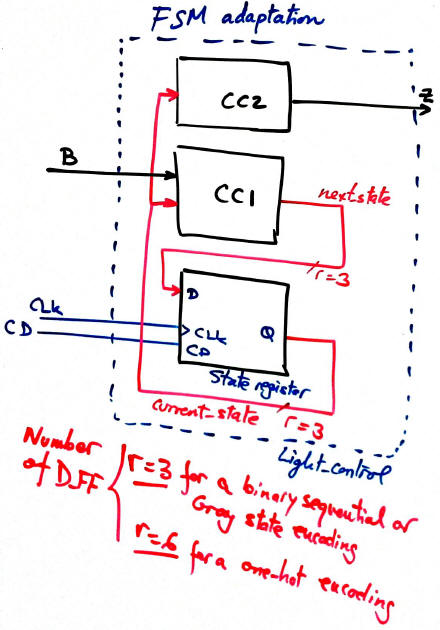 FSM adaptation
CC2
Z
B
CC1
next state
r=3
D
CLK
CD
CLK
CD
Q
State register
current_state
r=3
Light_control
Number
of DFF
r=3 for a binary sequential or
Gray state encoding
r=6 for a one-hot encoding